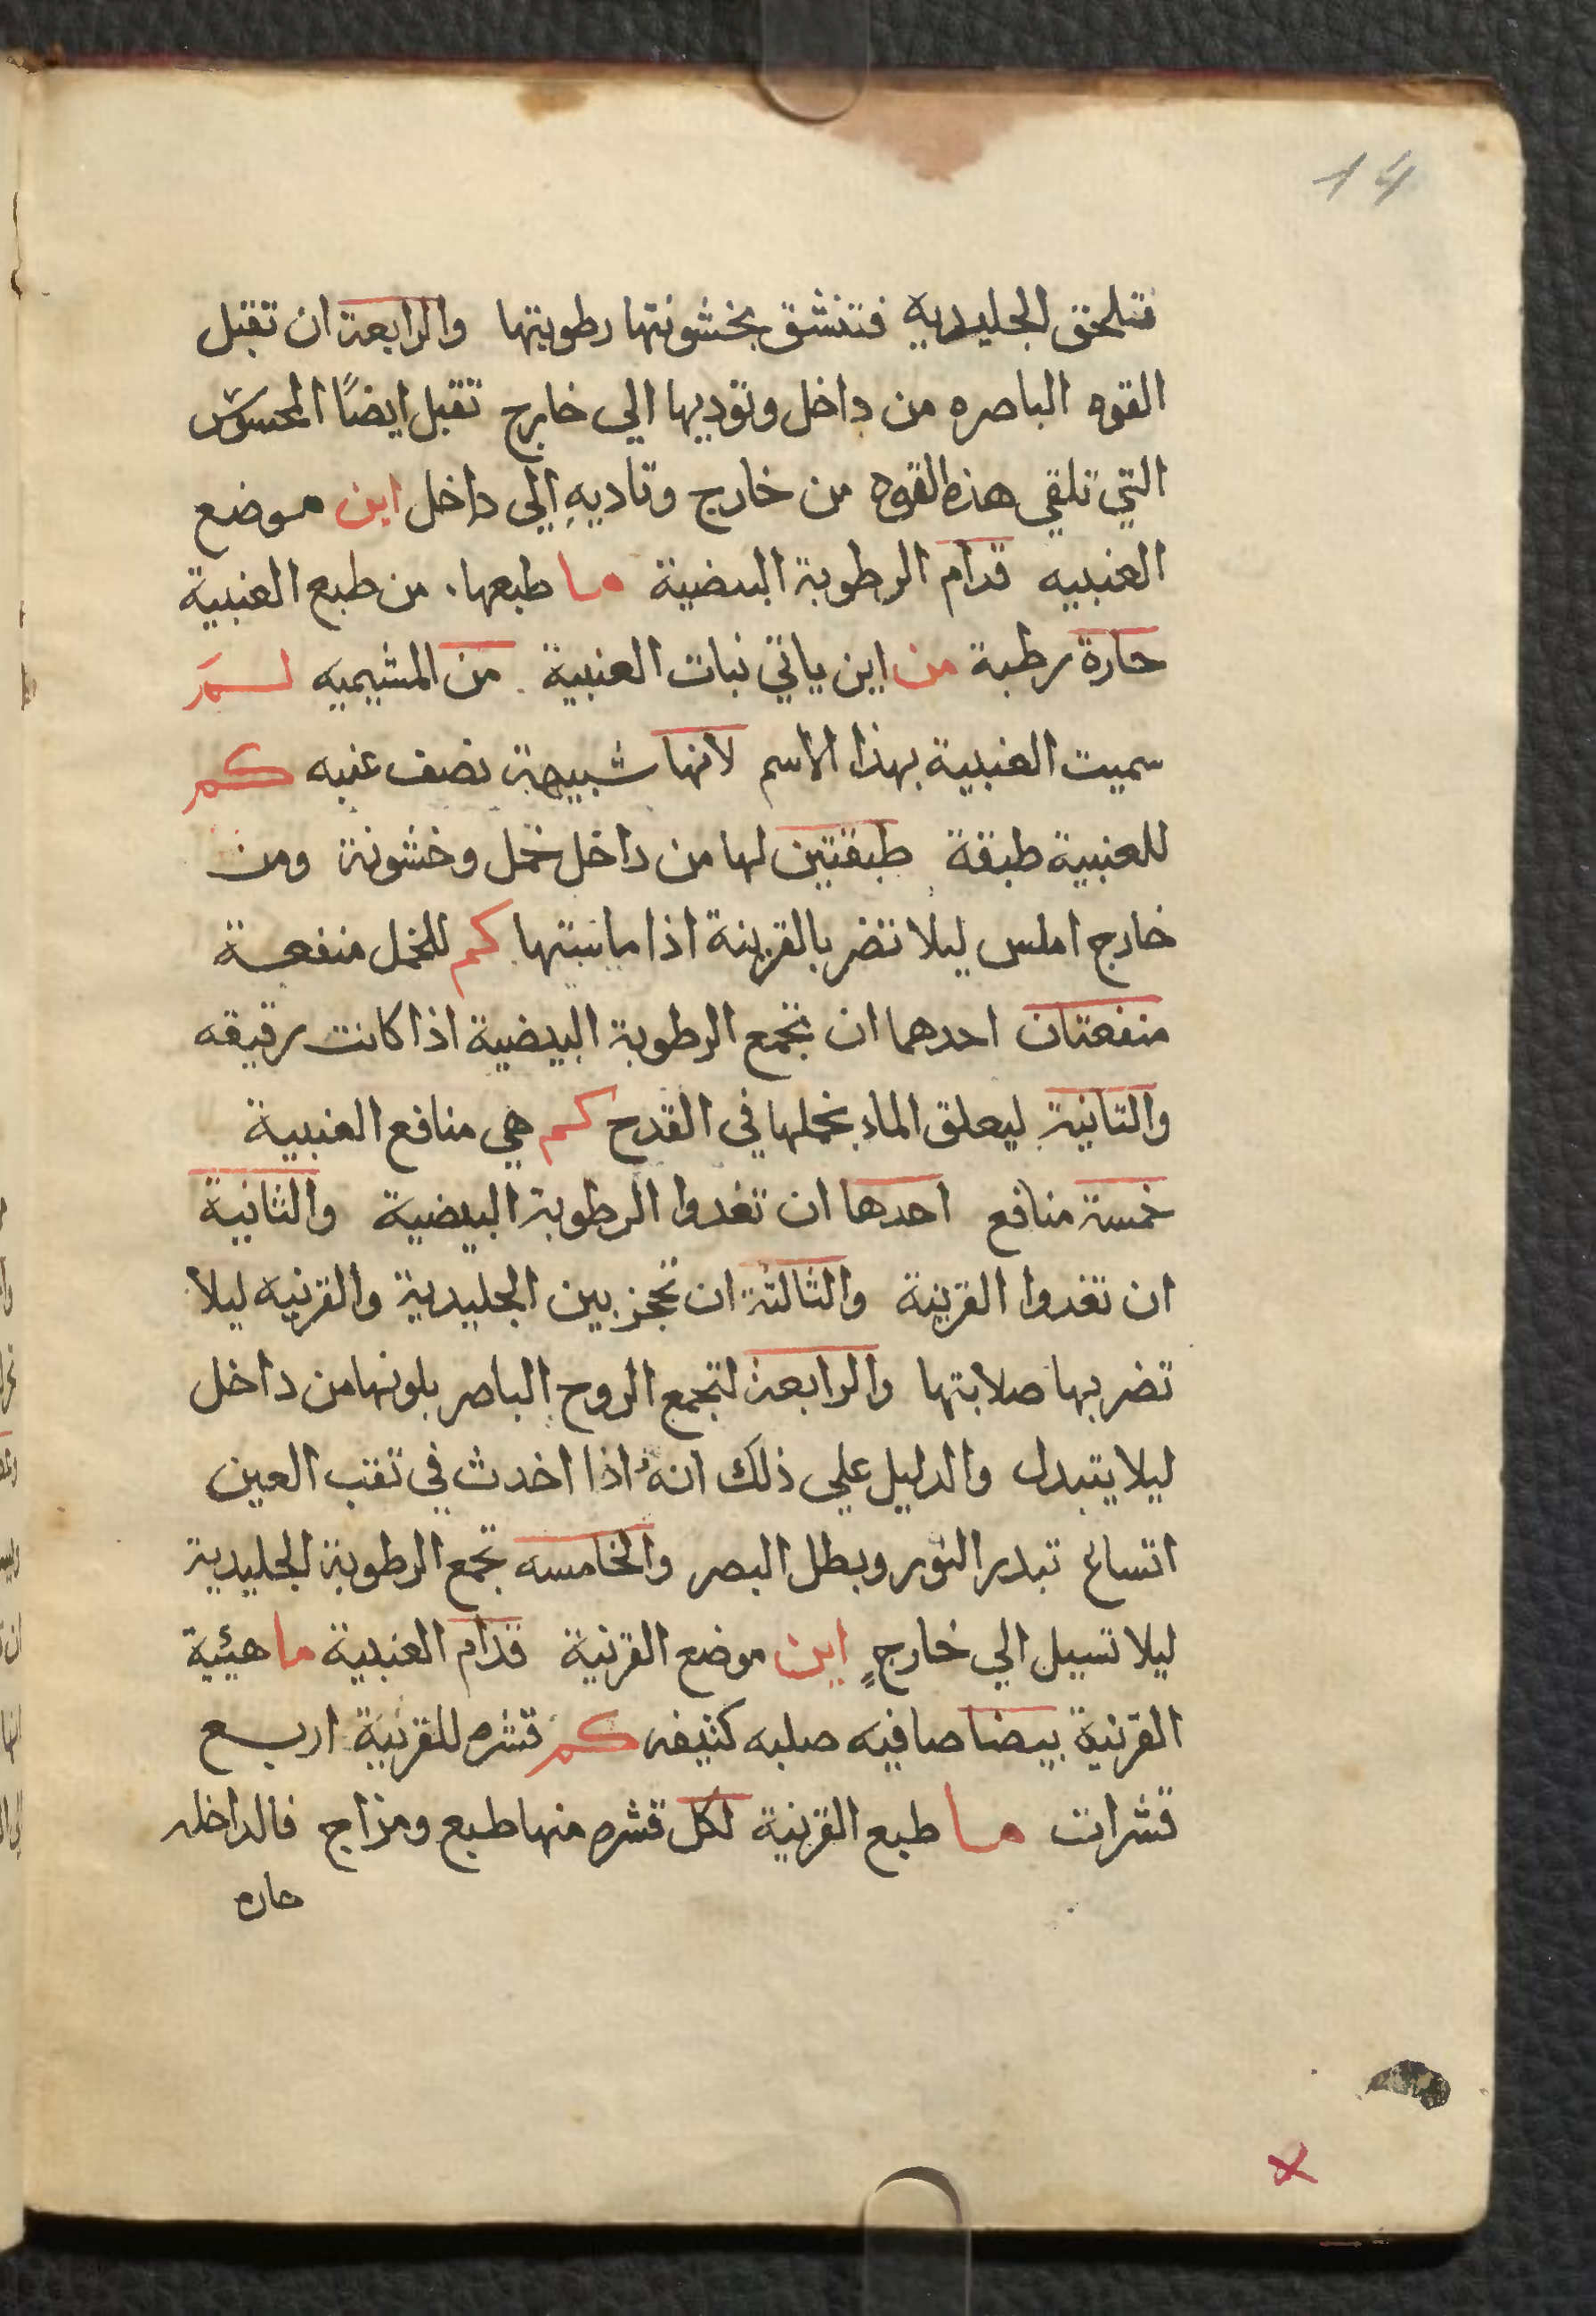 14
فتلحق الجليديه فتنشق بخشونتها رطوبتها والرابعة ان تقبل
القوه الباصره من داخل وتوديها الي خارج تقبل ايضًا المحسوس
التي تلقي هذه القوه من خارج وتاديهِ الي داخل اين موضع
العنبيه قدام الرطوبة البيضية ما طبعها. من طبع العنبية
حارة رطبة من اين ياتي نبات العنبية من المشيميه لم
سميت العنبية بهذا الاسم لانها شبيهة نصف عنبه كم
للعنبية طبقة طبقتين لها من داخل خمل وخشونة ومن
خارج املس ليلا تضر بالقرنية اذا ماستها كم للخمل منفعة
منفعتان احدهما ان تجمع الرطوبة البيضية اذا كانت رقيقه
والثانية ليعلق الماء بخملها في القدح كم هي منافع العنبية
خمسة منافع احدها ان تغدوا الرطوبة البيضية والثانية
ان تغدوا القرنية والثالثة ان تحجز بين الجليدية والقرنيه ليلا
تضر بها صلابتها والرابعة لتجمع الروح الباصر بلونها من داخل
ليلا يتبدل والدليل علي ذلك انهُ اذا اخدث في ثقب العين
اتساع تبدر النور وبطل البصر والخامسه تجمع الرطوبة الجليدية
ليلا تسيل الي خارجٍ اين موضع القرنية قدام العنبية ما هيئية
القرنية بيضا صافيه صلبه كثيفه كم قشره للقرنية اربع
قشرات ما طبع القرنية لكل قشره منها طبع ومزاج فالداخله
حاره